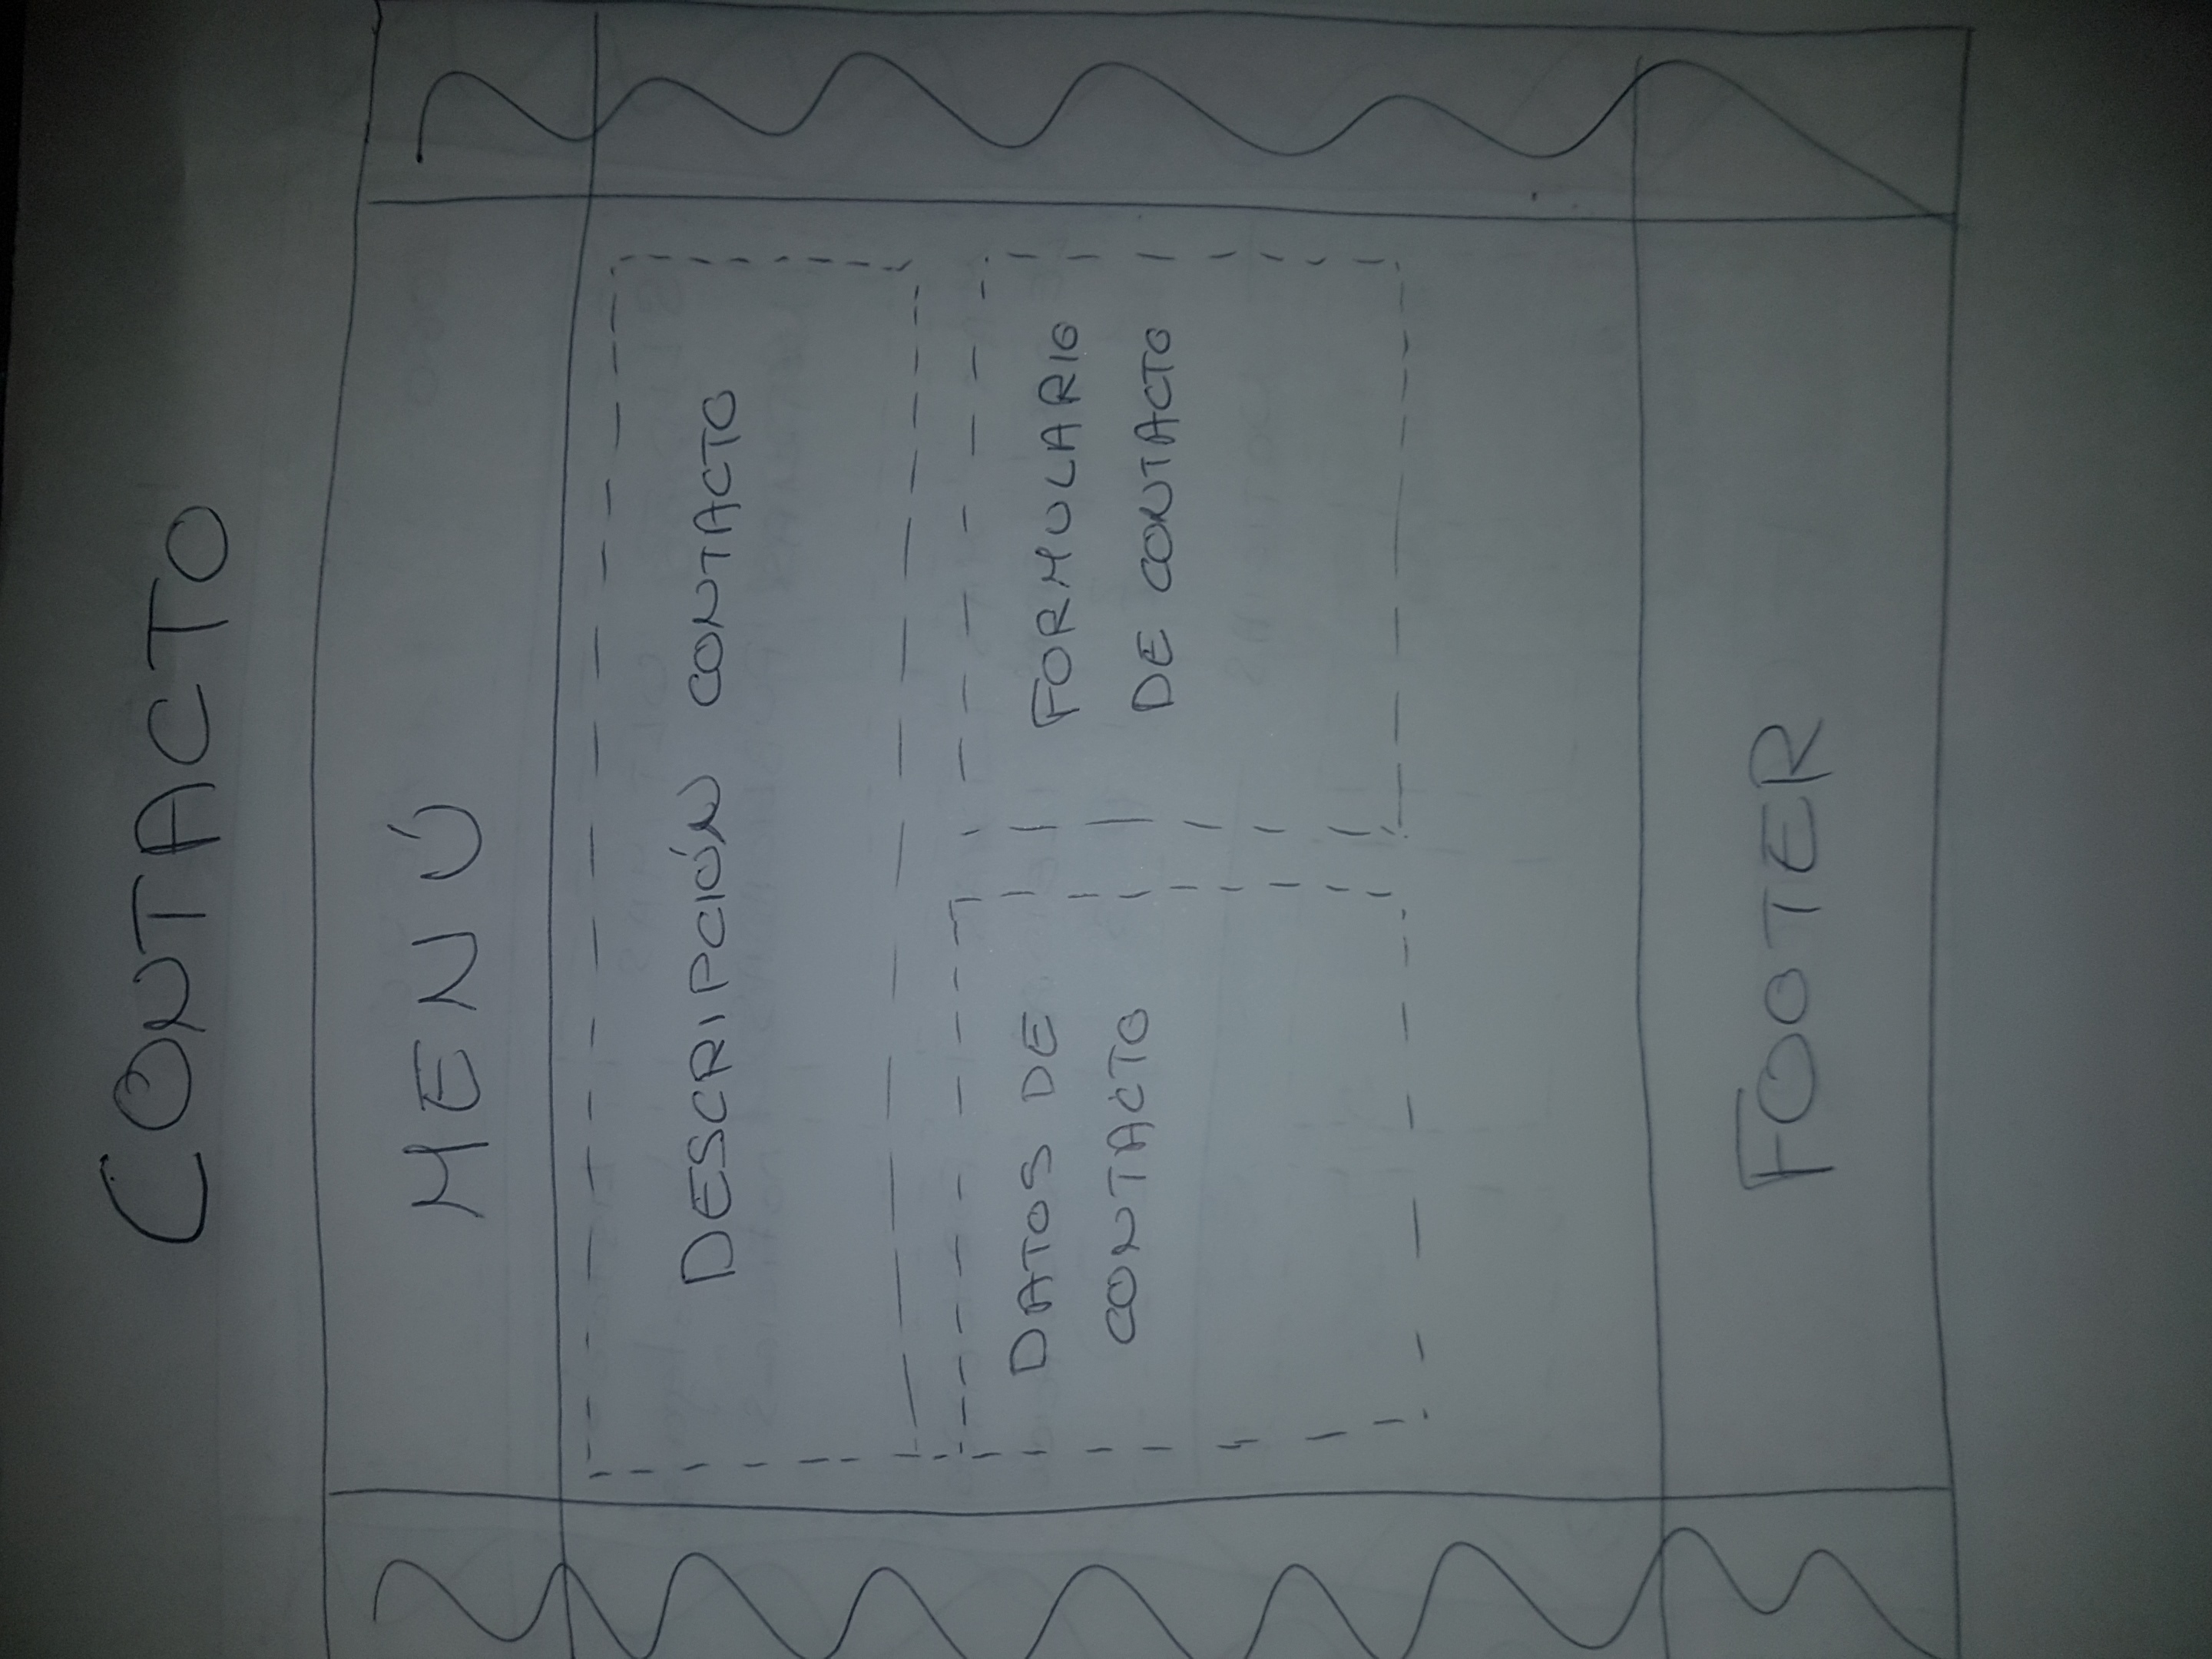 CONTACTO
MENÚ
DESCRIPCIÓN CONTACTO
DATOS DE
CONTACTO
FORMULARIO
DE CONTACTO
FOOTER